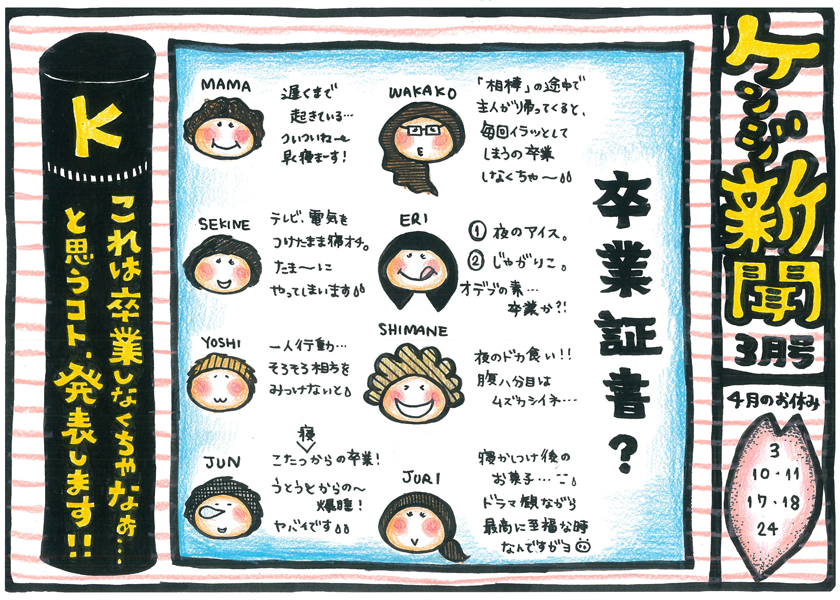 ケンジ新聞
3月号
4月のお休み
3
10・11
17・18
24
卒業証書?
WAKAKO
「相棒」の途中で
主人が帰ってくると、
毎回イラッとして
しまうの卒業
しなくちゃ〜
MAMA
遅くまで
起きている…
ついついね〜
早く寝まーす!
ERI
① 夜のアイス。
② じゃがりこ。
オデブの素…
卒業か?!
SEKINE
テレビ、電気を
つけたまま寝オチ。
たま〜に
やってしまいます
SHIMANE
夜のドカ食い!!
腹八分目は
ムズカシイネ…
YOSHI
一人行動…
そろそろ相方を
みつけないと
JURI
寝かしつけ後の
お菓子…
ドラマ観ながら
最高に至福な時
なんですがヨ
JUN
寝
こたつからの卒業!
うとうとからの〜
爆睡!
ヤバイです
K
これは卒業しなくちゃなぁ…
と思うコト、発表します!!